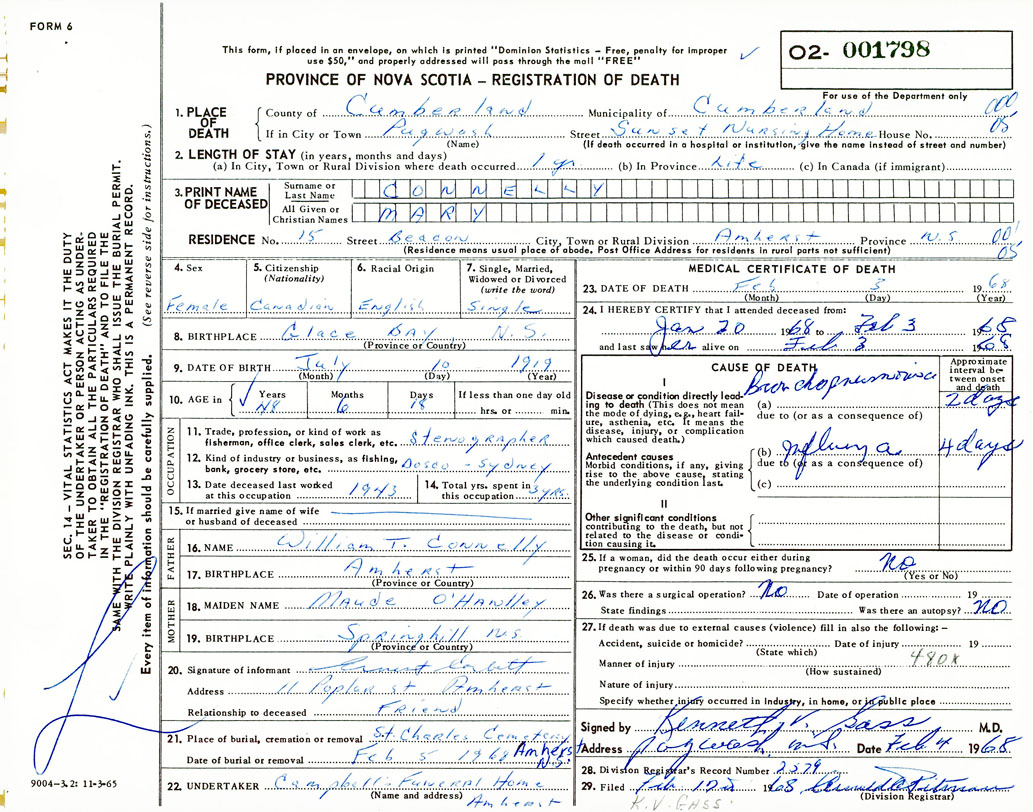 FORM 6
This form, if placed in an envelope, on which is printed "Dominion Statistics – Free, penalty for improper
use $50," and properly addressed will pass through the mail "FREE"
O2- 001798
PROVINCE OF NOVA SCOTIA – REGISTRATION OF DEATH
For use of the Department only
1. PLACE OF DEATH
County of Cumberland Municipality of Cumberland 00
If in City or Town Pugwash Street Sunset Nursing Home House No. 05
(Name) (If death occurred in a hospital or institution, give the name instead of street and number)
2. LENGTH OF STAY (in years, months and days)
(a) In City, Town or Rural Division where death occurred 1 yr. (b) In Province Life (c) In Canada (if immigrant)
3. PRINT NAME OF DECEASED
Surname or Last Name CONNELLY
All Given or Christian Names MARY
RESIDENCE No. 15 Street Beacon City, Town or Rural Division Amherst Province N.S 00
(Residence means usual place of abode. Post Office Address for residents in rural parts not sufficient) 05
4. Sex
Female
5. Citizenship
(Nationality)
Canadian
6. Racial Origin
English
7. Single, Married,
Widowed or Divorced
(write the word)
Single
8. BIRTHPLACE Glace Bay N.S.
(Province or Country)
9. DATE OF BIRTH July 10 1919
(Month) (Day) (Year)
10. AGE in Years Months Days If less than one day old
48 6 18 hrs. or min.
OCCUPATION
11. Trade, profession, or kind of work as
fisherman, office clerk, sales clerk, etc. Stenographer
12. Kind of industry or business, as fishing,
bank, grocery store, etc. Dosco - Sydney
13. Date deceased last worked
at this occupation 1943
14. Total yrs. spent in
this occupation 3 yrs.
15. If married give name of wife
or husband of deceased
FATHER
16. NAME William T. Connelly
17. BIRTHPLACE Amherst
(Province or Country)
MOTHER
18. MAIDEN NAME Maude O'Handley
19. BIRTHPLACE Springhill N.S.
(Province or Country)
20. Signature of informant
Address 11 Poplar St Amherst
Relationship to deceased Friend
21. Place of burial, cremation or removal St. Charles Cemetery
Amherst N.S.
Date of burial or removal Feb 5 1968
22. UNDERTAKER Campbell's Funeral Home
(Name and address) Amherst
MEDICAL CERTIFICATE OF DEATH
23. DATE OF DEATH Feb 3 1968
(Month) (Day) (Year)
24. I HEREBY CERTIFY that I attended deceased from:
Jan 20 1968 to Feb 3 1968
and last saw her alive on Feb 3 1968
CAUSE OF DEATH
Approximate
interval be-
tween onset
and death
I
Disease or condition directly lead-
ing to death (This does not mean
the mode of dying, e.g., heart fail-
ure, asthenia, etc. It means the
disease, injury, or complication
which caused death.)
(a) Bronchopneumonia 2 days
due to (or as a consequence of)
Antecedent causes
Morbid conditions, if any, giving
rise to the above cause, stating
the underlying condition last.
(b) Influenza 4 days
due to (or as a consequence of)
(c)
II
Other significant conditions
contributing to the death, but not
related to the disease or condi-
tion causing it.
25. If a woman, did the death occur either during
pregnancy or within 90 days following pregnancy? No
(Yes or No)
26. Was there a surgical operation? No Date of operation 19
State findings Was there an autopsy? NO
27. If death was due to external causes (violence) fill in also the following: –
Accident, suicide or homicide? Date of injury 19
(State which) 480X
Manner of injury
(How sustained)
Nature of injury
Specify whether injury occurred in industry, in home, or in public place
Signed by Kenneth V. Bass M.D.
Address Pugwash N.S. Date Feb 4 1968
28. Division Registrar's Record Number 2579
29. Filed Feb. 12 1968
(Division Registrar)
K.V. BASS.
SEC. 14 – VITAL STATISTICS ACT MAKES IT THE DUTY
OF THE UNDERTAKER OR PERSON ACTING AS UNDER-
TAKER TO OBTAIN ALL THE PARTICULARS REQUIRED
IN THE "REGISTRATION OF DEATH" AND TO FILE THE
SAME WITH THE DIVISION REGISTRAR WHO SHALL ISSUE THE BURIAL PERMIT.
WRITE PLAINLY WITH UNFADING INK. THIS IS A PERMANENT RECORD.
Every item of information should be carefully supplied. (See reverse side for instructions.)
9004-3.2: 11-3-65